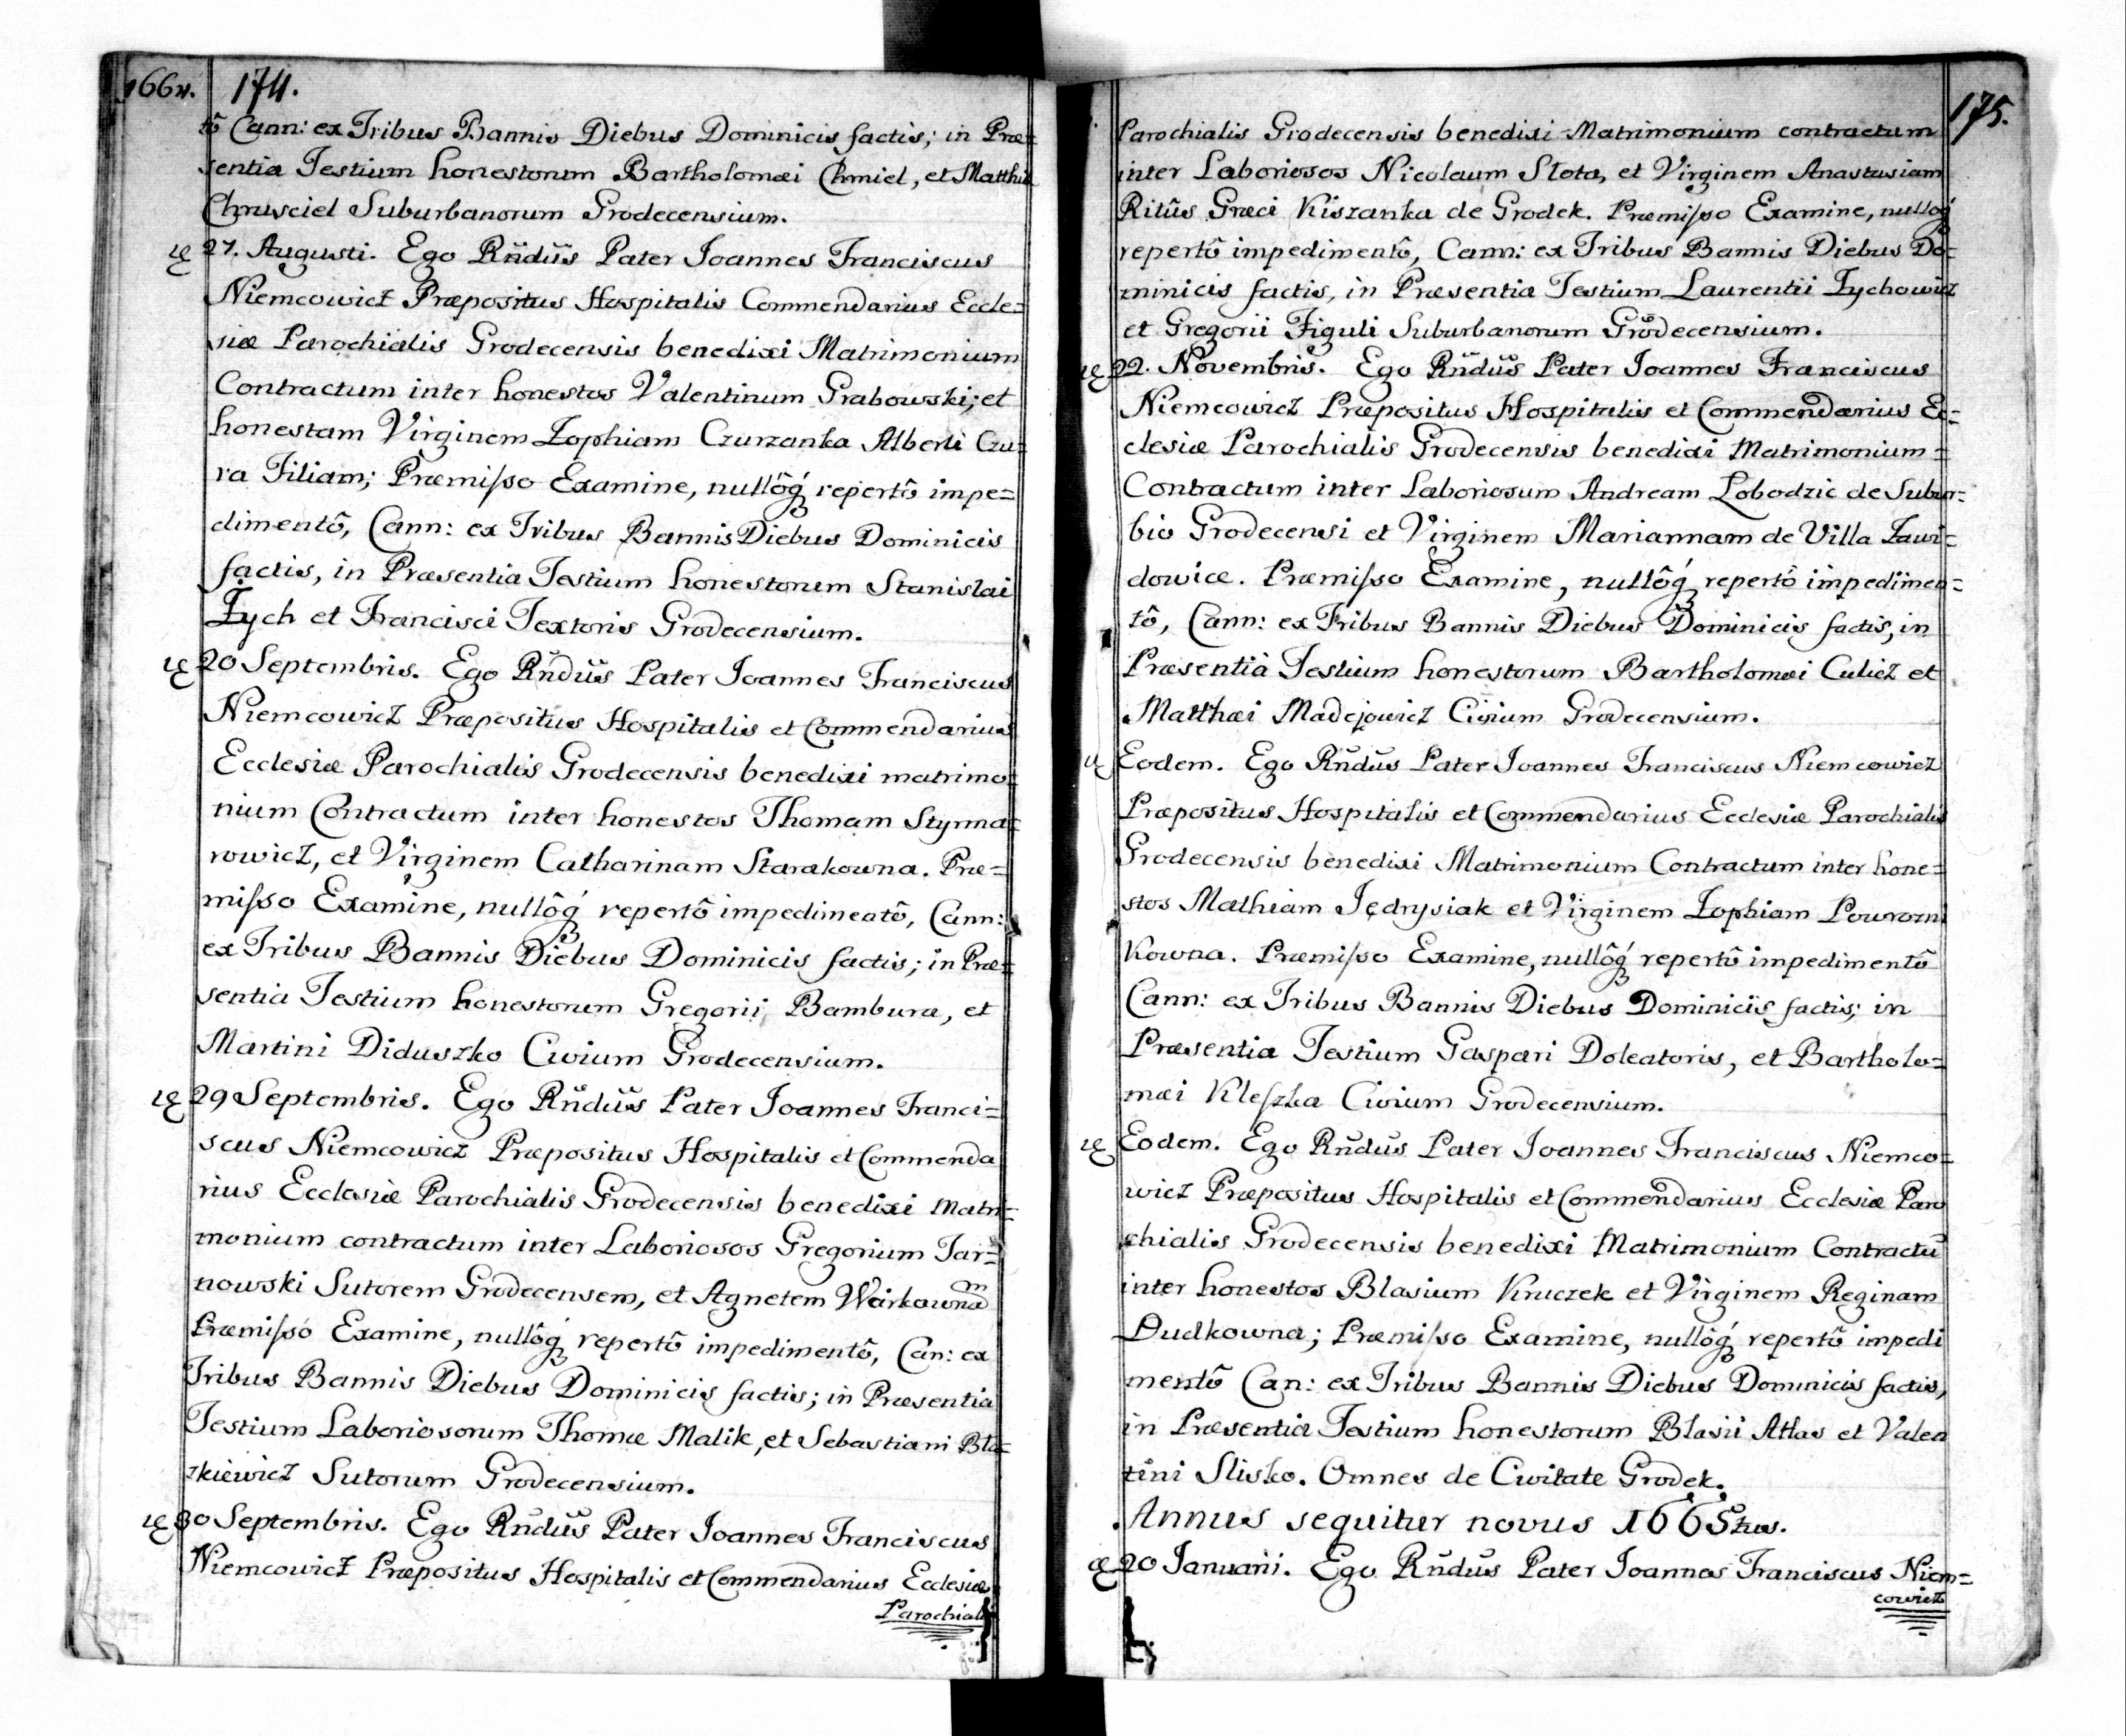 1664. 174.
tô Cann: ex Tribus Bannis Diebus Dominicis factis; in Præ=
sentia Testium honestorum Bartholomæi Chmiel, et Matthiæ
Chrusciel Suburbanorum Grodecensium.
27. Augusti. Ego Rñdüs Pater Joannes Franciscus
Niemcowicz Præpositus Hospitalis Commendarius Eccle=
siæ Parochialis Grodecensis benedixi Matrimonium
Contractum inter honestos Valentinum Grabowski; et
honestam Virginem Zophiam Czurzanka Alberti Czu=
ra Filiam; Præmisso Examine, nullôq́ repertô impe=
dimentô, Cann: ex Tribus Bannis Diebus Dominicis
factis, in Præsentia Testium honestorum Stanislai
Zych et Francisci Textoris Grodecensium.
20 Septembris. Ego Rñdüs Pater Joannes Franciscus
Niemcowicz Præpositus Hospitalis et Commendarius
Ecclesiæ Parochialis Grodecensis benedixi matrimo=
nium Contractum inter honestos Thomam Styrma=
rowicz, et Virginem Catharinam Starakowna. Præ=
misso Examine, nullôq́ repertô impedimentô, Cann:
ex Tribus Bannis Diebus Dominicis factis; in Præ=
sentia Testium honestorum Gregorii Bambura, et
Martini Diduszko Civium Grodecensium.
29 Septembris. Ego Rñdüs Pater Joannes Franci=
scus Niemcowicz Præpositus Hospitalis et Commenda
rius Ecclesiæ Parochialis Grodecensis benedixi Matri=
monium contractum inter Laboriosos Gregorium Tar=
nowski Sutorem Grodecensem, et Agnetem Warkownam
Præmisso Examine, nullôq́ repertô impedimentô, Can: ex
Tribus Bannis Diebus Dominicis factis; in Præsentia
Testium Laboriosorum Thomæ Malik, et Sebastiani Bla=
zkiewicz Sutorum Grodecensium.
30 Septembris. Ego Rñdüs Pater Joannes Franciscus
Niemcowicz Præpositus Hospitalis et Commendarius Ecclesiæ
Parochialis
175.
Parochialis Grodecensis benedixi Matrimonium contractum
inter Laboriosos Nicolaum Slota, et Virginem Anastasiam
Ritûs Græci Kiszanka de Grodek. Præmisso Examine, nulloq́
repertô impedimentô, Cann: ex Tribus Bannis Diebus Do=
minicis factis, in Præsentia Testium Laurentii Zychowicz
et Gregorii Figuli Suburbanorum Grodecensium.
22. Novembris. Ego Rñdüs Pater Joannes Franciscus
Niemcowicz Præpositus Hospitalis et Commendarius Ec=
clesiæ Parochialis Grodecensis benedixi Matrimonium=
Contractum inter Laboriosum Andream Lobodzic de Subur=
bio Grodecensi et Virginem Mariannam de Villa Zawi=
dowice. Præmisso Examine, nullôq́ repertô impedimen=
tô, Cann: ex Tribus Bannis Diebus Dominicis factis, in
Præsentia Testium honestorum Bartholomæi Culicz et
Matthæi Madejowicz Civium Grodecensium.
Eodem. Ego Rñdus Pater Joannes Franciscus Niemcowicz
Præpositus Hospitalis et Commendarius Ecclesiæ Parochialis
Grodecensis benedixi Matrimonium Contractum inter hone=
stos Mathiam Jędrysiak et Virginem Zophiam Powrozni
kowna. Præmisso Examine, nullôq́ repertô impedimentô
Cann: ex Tribus Bannis Diebus Dominicis factis; in
Præsentia Testium Gaspari Doleatoris, et Bartholo=
mæi Kleszka Civium Grodecensium.
Eodem. Ego Rñdus Pater Joannes Franciscus Niemco=
wicz Præpositus Hospitalis et Commendarius Ecclesiæ Paro
chialis Grodecensis benedixi Matrimonium Contractū
inter honestos Blasium Kruczek et Virginem Reginam
Dudkowna; Præmisso Examine, nullôq́ repertô impedi
mentô Can: ex Tribus Bannis Diebus Dominicis factis,
in Præsentia Testium honestorum Blasii Atlas et Valen
tini Slisko. Omnes de Civitate Grodek.
Annus sequitur novus 1665tus.
20 Januarii. Ego Rñdus Pater Joannes Franciscus Niem=
cowicz